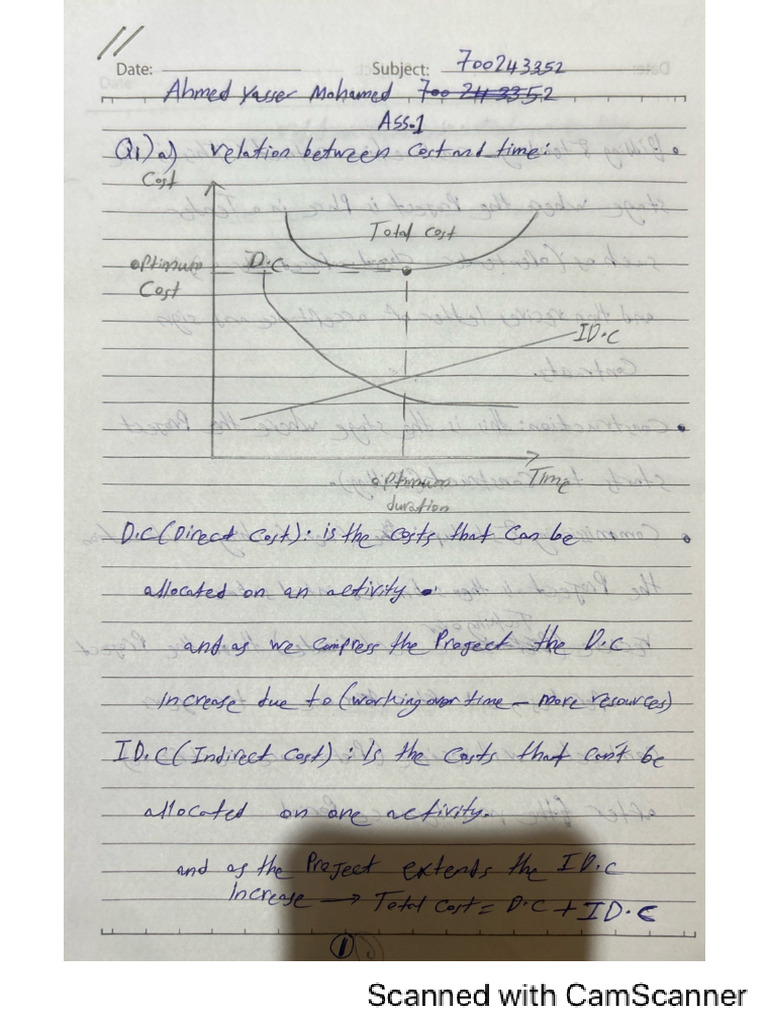 Date:
Subject: 700243352
Ahmed Yasser Mohamed 700243352
Ass.1
Q1) a) relation between Cost and time:
Cost
Total cost
optimum
Cost
D.C
ID.C
Time
optimum
duration
D.C (Direct Cost): is the costs that can be
allocated on an activity.
and as we compress the Project the D.C
Increase due to (working over time – more resources)
ID.C (Indirect cost): is the costs that can't be
allocated on one activity.
and as the Project extends the ID.C
Increase → Total Cost = D.C + ID.C
1
Scanned with CamScanner